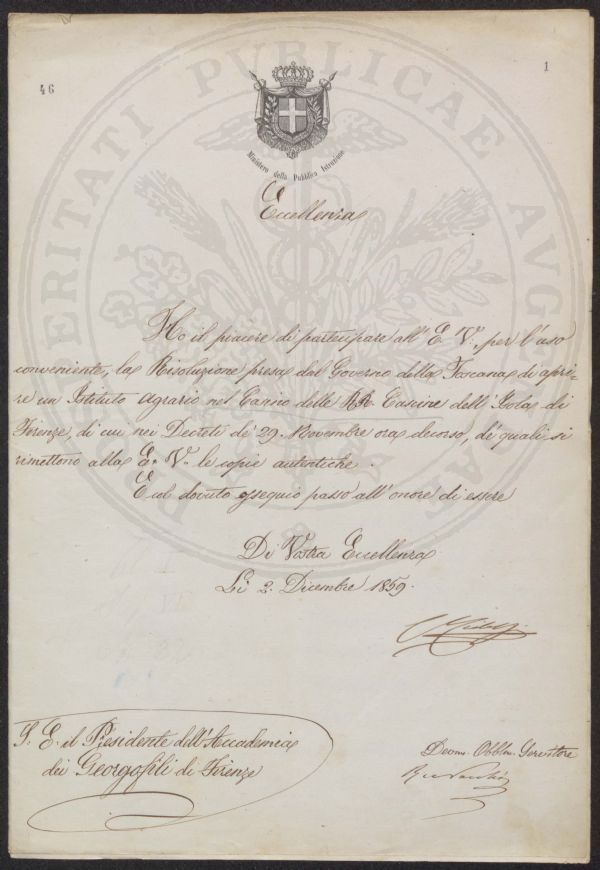 46
1
PROSPERITATI PUBLICAE AUGENDAE
Ministero della Pubblica Istruzione
Eccellenza
Ho il piacere di partecipare all' E. V., per l'uso
conveniente, la Risoluzione presa dal Governo della Toscana di apri-
re un Istituto Agrario nel Casino delle RR. Cascine dell'Isola di
Firenze, di cui nei Decreti de' 29. Novembre ora decorso, de' quali si
rimettono alla E. V. le copie autentiche.
E col dovuto ossequio passo all'onore di essere
Di Vostra Eccellenza
Li 2. Dicembre 1859.
S. E. il Presidente dell'Accademia
dei Georgofili di Firenze
Devmo. Obblmo. Servitore